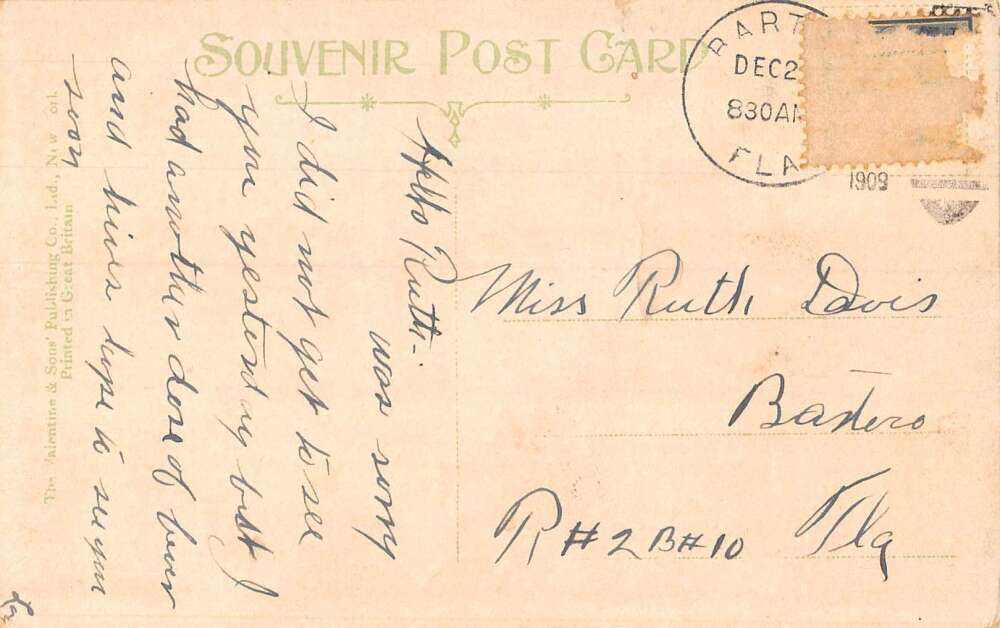 SOUVENIR POST CARD
BART
DEC 2
830 AM
FLA
1909
Hello Ruth-
was sorry
I did not get to see
you yesterday but I
had another dose of fever
and hives hope to see you
soon
Miss Ruth Davis
R#2 B#10 Fla
The Valentine & Sons' Publishing Co., Ltd., New York.
Printed in Great Britain